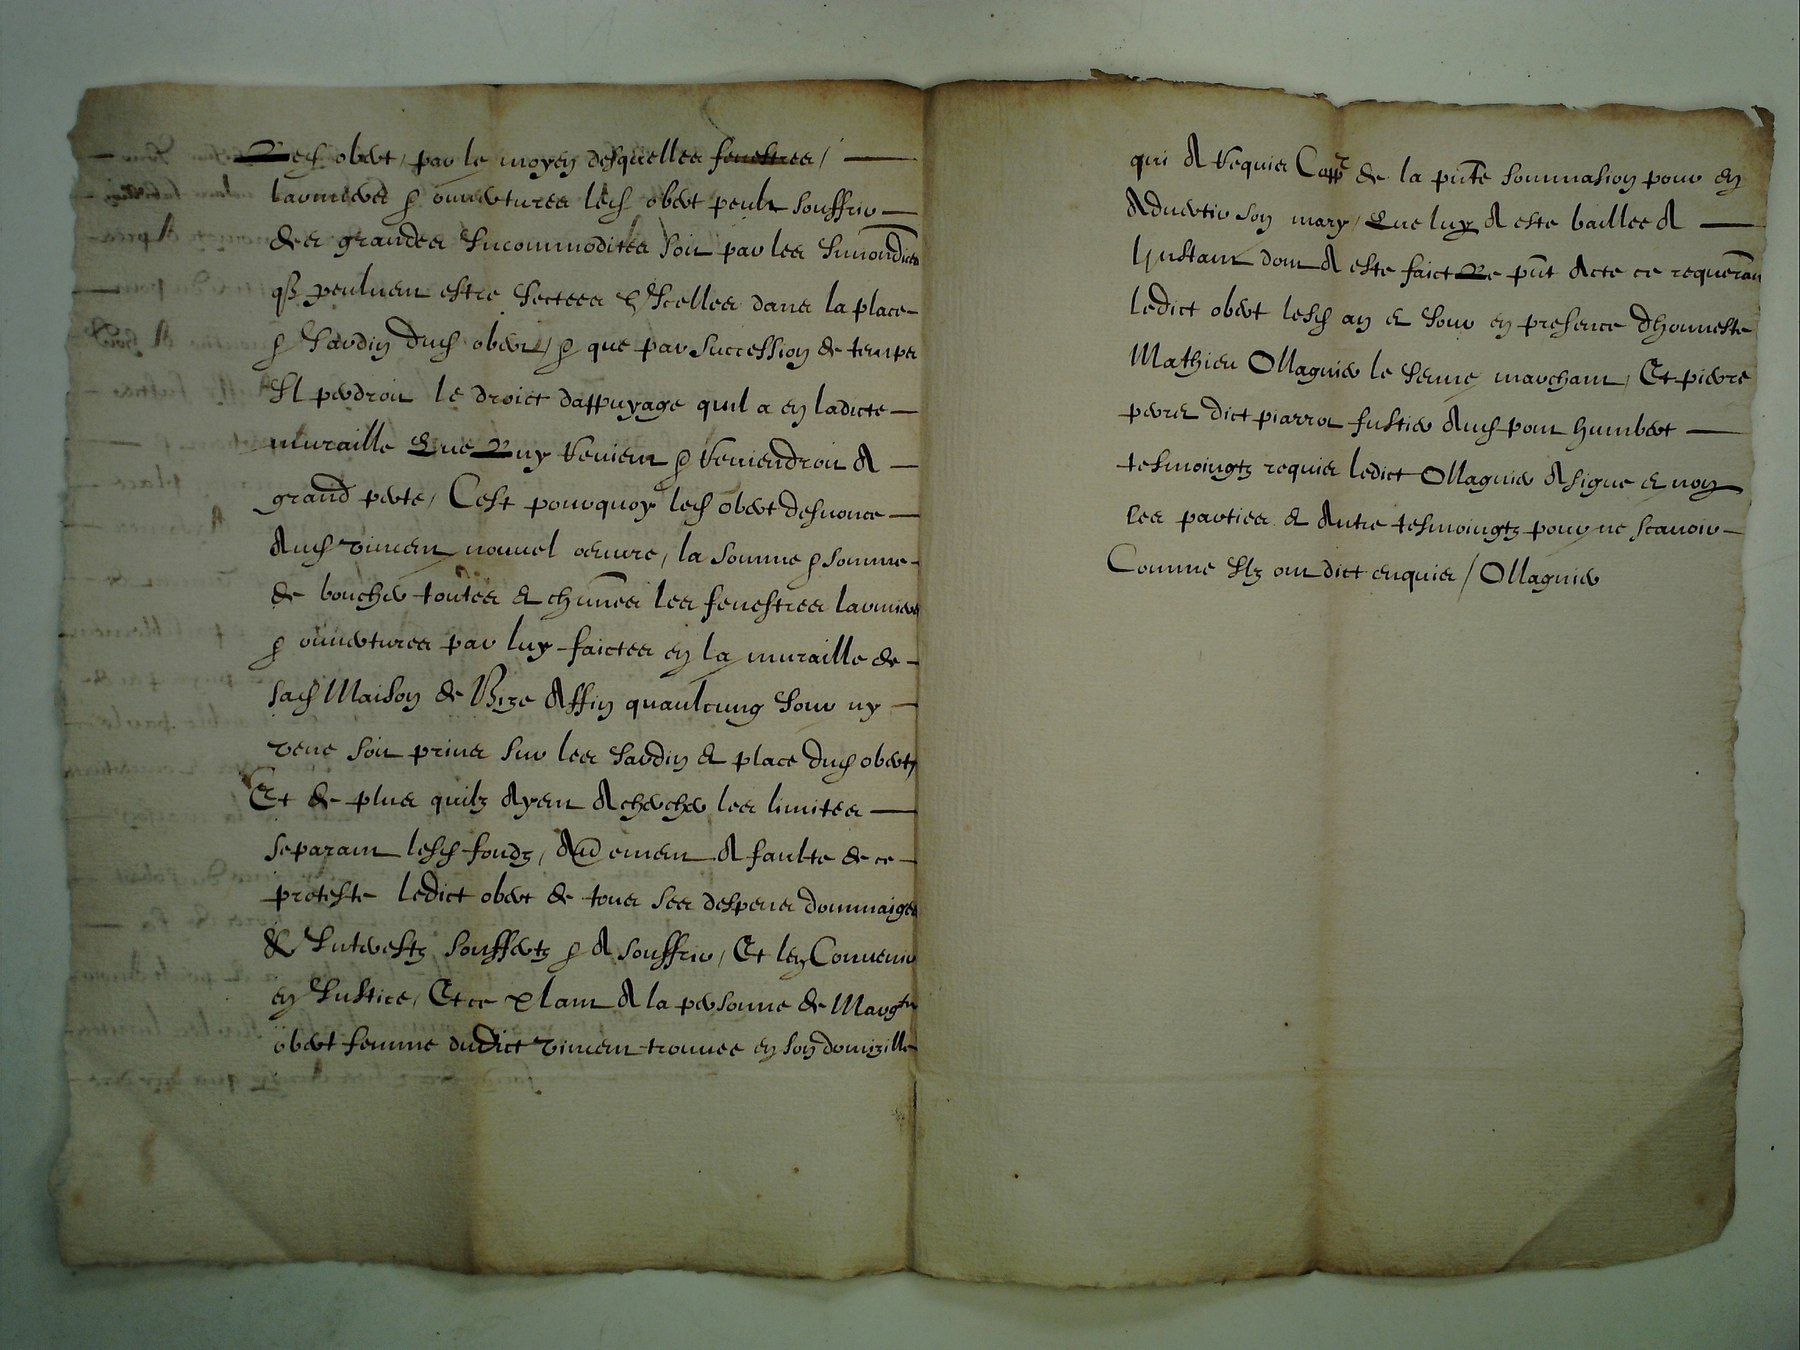 lesd obert, par le moyen desquelles fenestres,
larmieres & ouuertures led obert peult souffrir
des grandes Incommodites soit par les Immondices
qu peuluent estre Jectees & Jcelles dans la place
& Jardin dud obert, & que par succession de temps
Il perdroit le droict dappuyage quil a en ladicte
muraille que luy vienent & reuiendroit A
grand perte, Cest pourquoy led obert desnonce
Aud viment nouuel oeuure, la somme & somme
de boucher toutes & chunes les fenestres larmieres
& ouuertures par luy faictes en la muraille de
sad Maison de Bize Affin quaulcung Jour ny
veue soit prins sur les Jardin & place dud obert,
Et de plus quilz Ayent A chercher les limites
separant lesd fondz, Audrement A faulte de ce
proteste ledict obert de tous ses despens dommaiges
& Interestz souffertz & A souffrir, Et len Conuenir
en Justice, Et ce plant A la personne de Margte
obert femme dudict viment trouuee en son domizille
qui A requis Coppe de la pnte sommasion pour en
Aduertir son mary, que luy A este baillee A
lynstant dont A este faict le pnt Acte ce requerant
ledict obert lesd an & Jour en presence dhonneste
Mathieu Ollagnier le Jeune marchant, Et pierre
peyret dict piarrot fustier dud pont humbert
tesmoingtz requis ledict Ollagnier A signe & non
les parties & Autre tesmoingtz pour ne scauoir
Comme Ilz ont dict enquis / Ollagnier